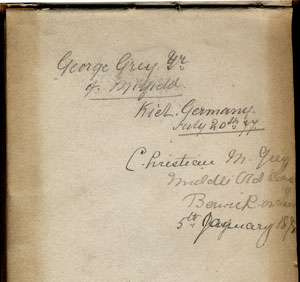 George Grey Yr
of Milfield
Kiel. Germany.
July 20th 77
Christian M. Grey
Middle Ord
Berwick on
5th January 18